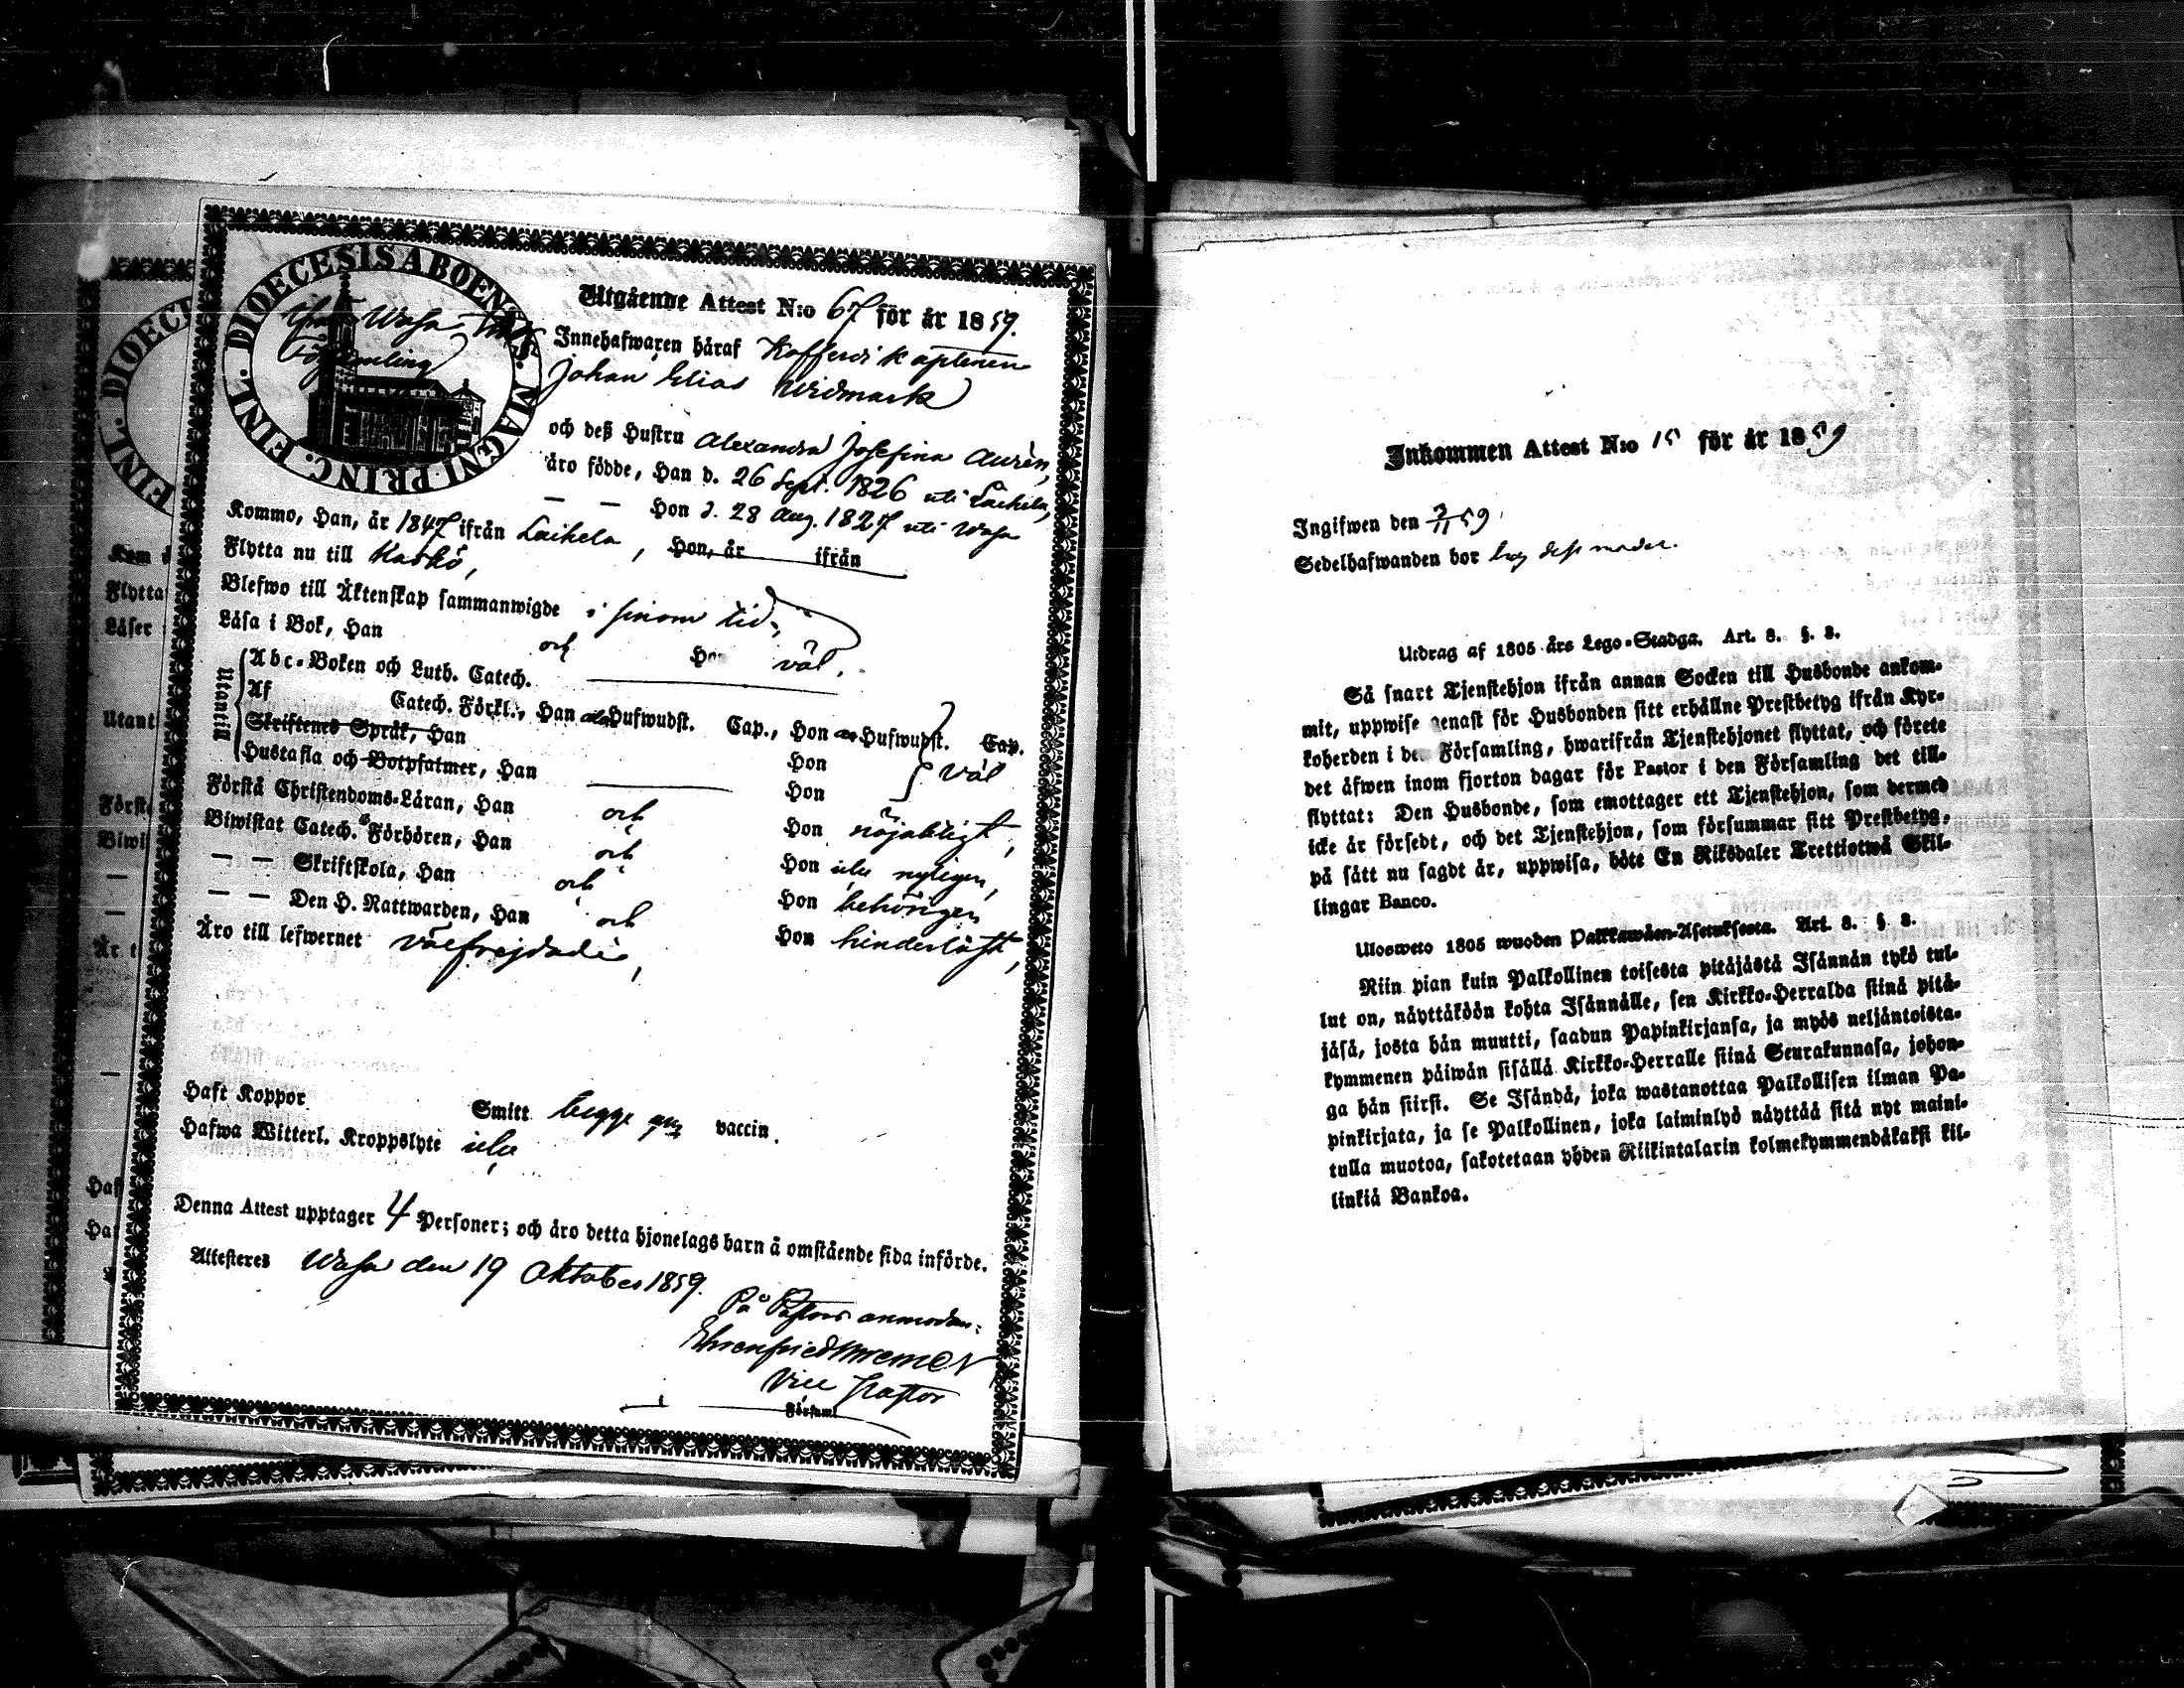 DIOECESIS ABOENSIS. MAGNI. PRINC. FINL.
Wasa
Församling
Utgående Attest N:o 67 för år 1859.
Innehafwaren häraf Kofferdi kaptenen
Johan Elias Widmark
och deß Hustru Alexandra Josefina Aurén,
äro födde, Han d. 26 Sept. 1826 uti Laihela,
— — Hon d. 28 Aug. 1827 uti Wasa
Kommo, Han, år 1847 ifrån Laihela, Hon, år ifrån
Flytta nu till Kaskö,
Blefwo till Äktenskap sammanwigde i sinom tid,
Läsa i Bok, Han och Hon väl,
Utantill
Abc-Boken och Luth. Catech.
Af Catech. Förkl., Han Hufwudst. Cap., Hon Hufwudst. Cap.
Skriftenes Språk, Han Hon
Hustafla och Botpsalmer, Han Hon väl
Förstå Christendoms-Läran, Han och Hon nöjaktigt,
Biwistat Catech. Förhören, Han och Hon icke nyligen,
— — Skriftskola, Han och Hon behörigen
— — Den H. Nattwarden, Han och Hon hinderlöst,
Äro till lefwernet välfrejdade,
Haft Koppor Smitt begge gm vaccin.
Hafwa Witterl. Kroppslyte icke
Denna Attest upptager 4 Personer; och äro detta hjonelags barn å omstående sida införde.
Attesteres Wasa den 19 Oktober 1859.
På Pastors anmodan:
Vice Pastor
Församl
DIOECE
FINL.
Flytta
Läser
Utant
Inkommen Attest N:o 15 för år 1859
Ingifwen den 2/11 59
Sedelhafwanden bor hos dess moder.
Utdrag af 1805 års Lego-Stadga. Art. 8. §. 8.
Så snart Tjenstehjon ifrån annan Socken till Husbonde ankom-
mit, uppwise genast för Husbonden sitt erhållne Prestbetyg ifrån Kyr-
koherden i den Församling, hwarifrån Tjenstehjonet flyttat, och förete
det äfwen inom fjorton dagar för Pastor i den Församling det till-
flyttat: Den Husbonde, som emottager ett Tjenstehjon, som dermed
icke är försedt, och det Tjenstehjon, som försummar sitt Prestbetyg,
på sätt nu sagdt är, uppwisa, böte En Riksdaler Trettiotwå Skil-
lingar Banco.
Ulosweto 1805 wuoden Palkkawäen-Asetuksesta. Art. 8. § 8.
Niin pian kuin Palkollinen toisesta pitäjästä Isännän tykö tul-
lut on, näyttäköön kohta Isännälle, sen Kirkko-Herralda siinä pitä-
jäsä, josta hän muutti, saadun Papinkirjansa, ja myös neljäntoista-
kymmenen päiwän sisällä Kirkko-Herralle siinä Seurakunnasa, johon-
ga hän siirsi. Se Isändä, joka wastanottaa Palkollisen ilman Pa-
pinkirjata, ja se Palkollinen, joka laiminlyö näyttää sitä nyt maini-
tulla muotoa, sakotetaan yhden Riikintalarin kolmekymmendäkaksi kil-
linkiä Bankoa.